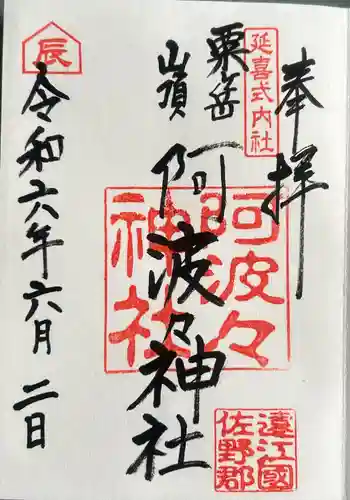 奉拝
延喜式内社
粟ヶ岳
山頂
阿波々神社
阿波々
神社
遠江國
佐野郡
辰
令和六年六月二日